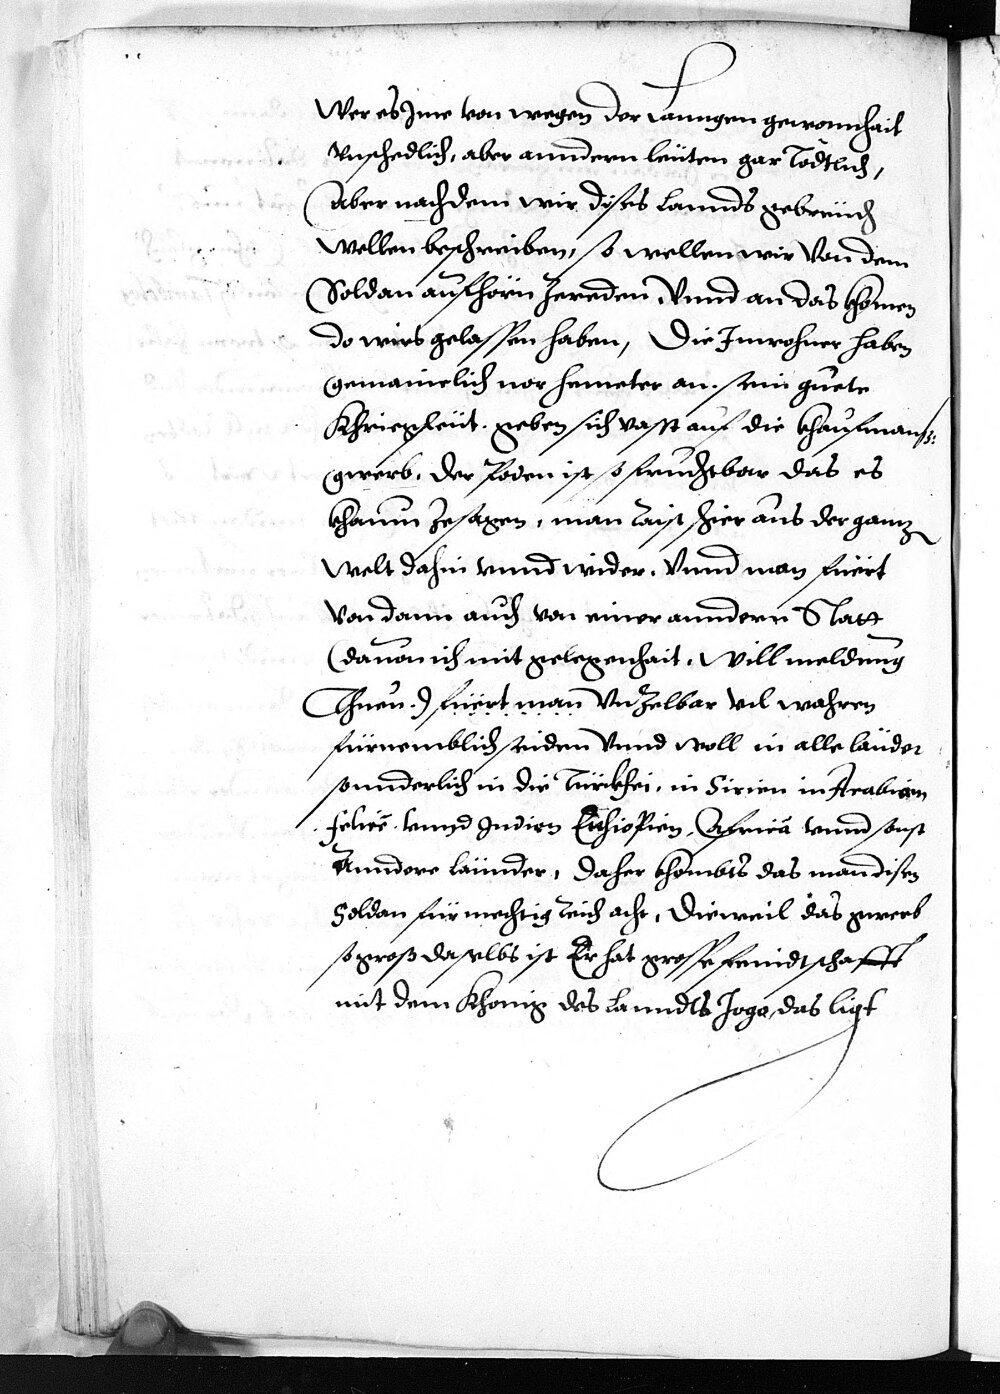 Wer es Jme von wegen der Lanngen gewonnhait
vnschedlich, aber anndern leüten gar Tödtlich,
Aber nachdem wir dises Lannds gebreüch
wellen beschreiben, so wellen wir von dem
Soldan aufhörn zereden, vnnd an das khomen
do wirs gelassen haben, Die Jnwohner haben
gemainelich nor hemeter an. sein guete
Khriegsleüt. geben sich vasst auf die khaufmans:
gwerb. der Poden ist so fruchtbar das es
khaum zesagen, man raist hier aus der gantz
welt dahin vnnd wider. Vnnd man füert
von dann auch von einer anndern Statt
(dauon ich mit gelegenhait. will meldung
Thuen.) füert man vnzelbar vil wahren
fürnemblich seiden vnnd woll in alle länder
sonnderlich in die Türckhei, in Sirien in Arabiam
felicē. vnnd Indien Ethiopien, Africā vnnd sonst
Anndere lännder, daher khombts das man disen
Soldan für mechtig reich acht, Dieweil das gwerb
so groß daselbs ist Er hat grosse feindtschafft
mit dem Khonig des Lanndts Joga, das ligt